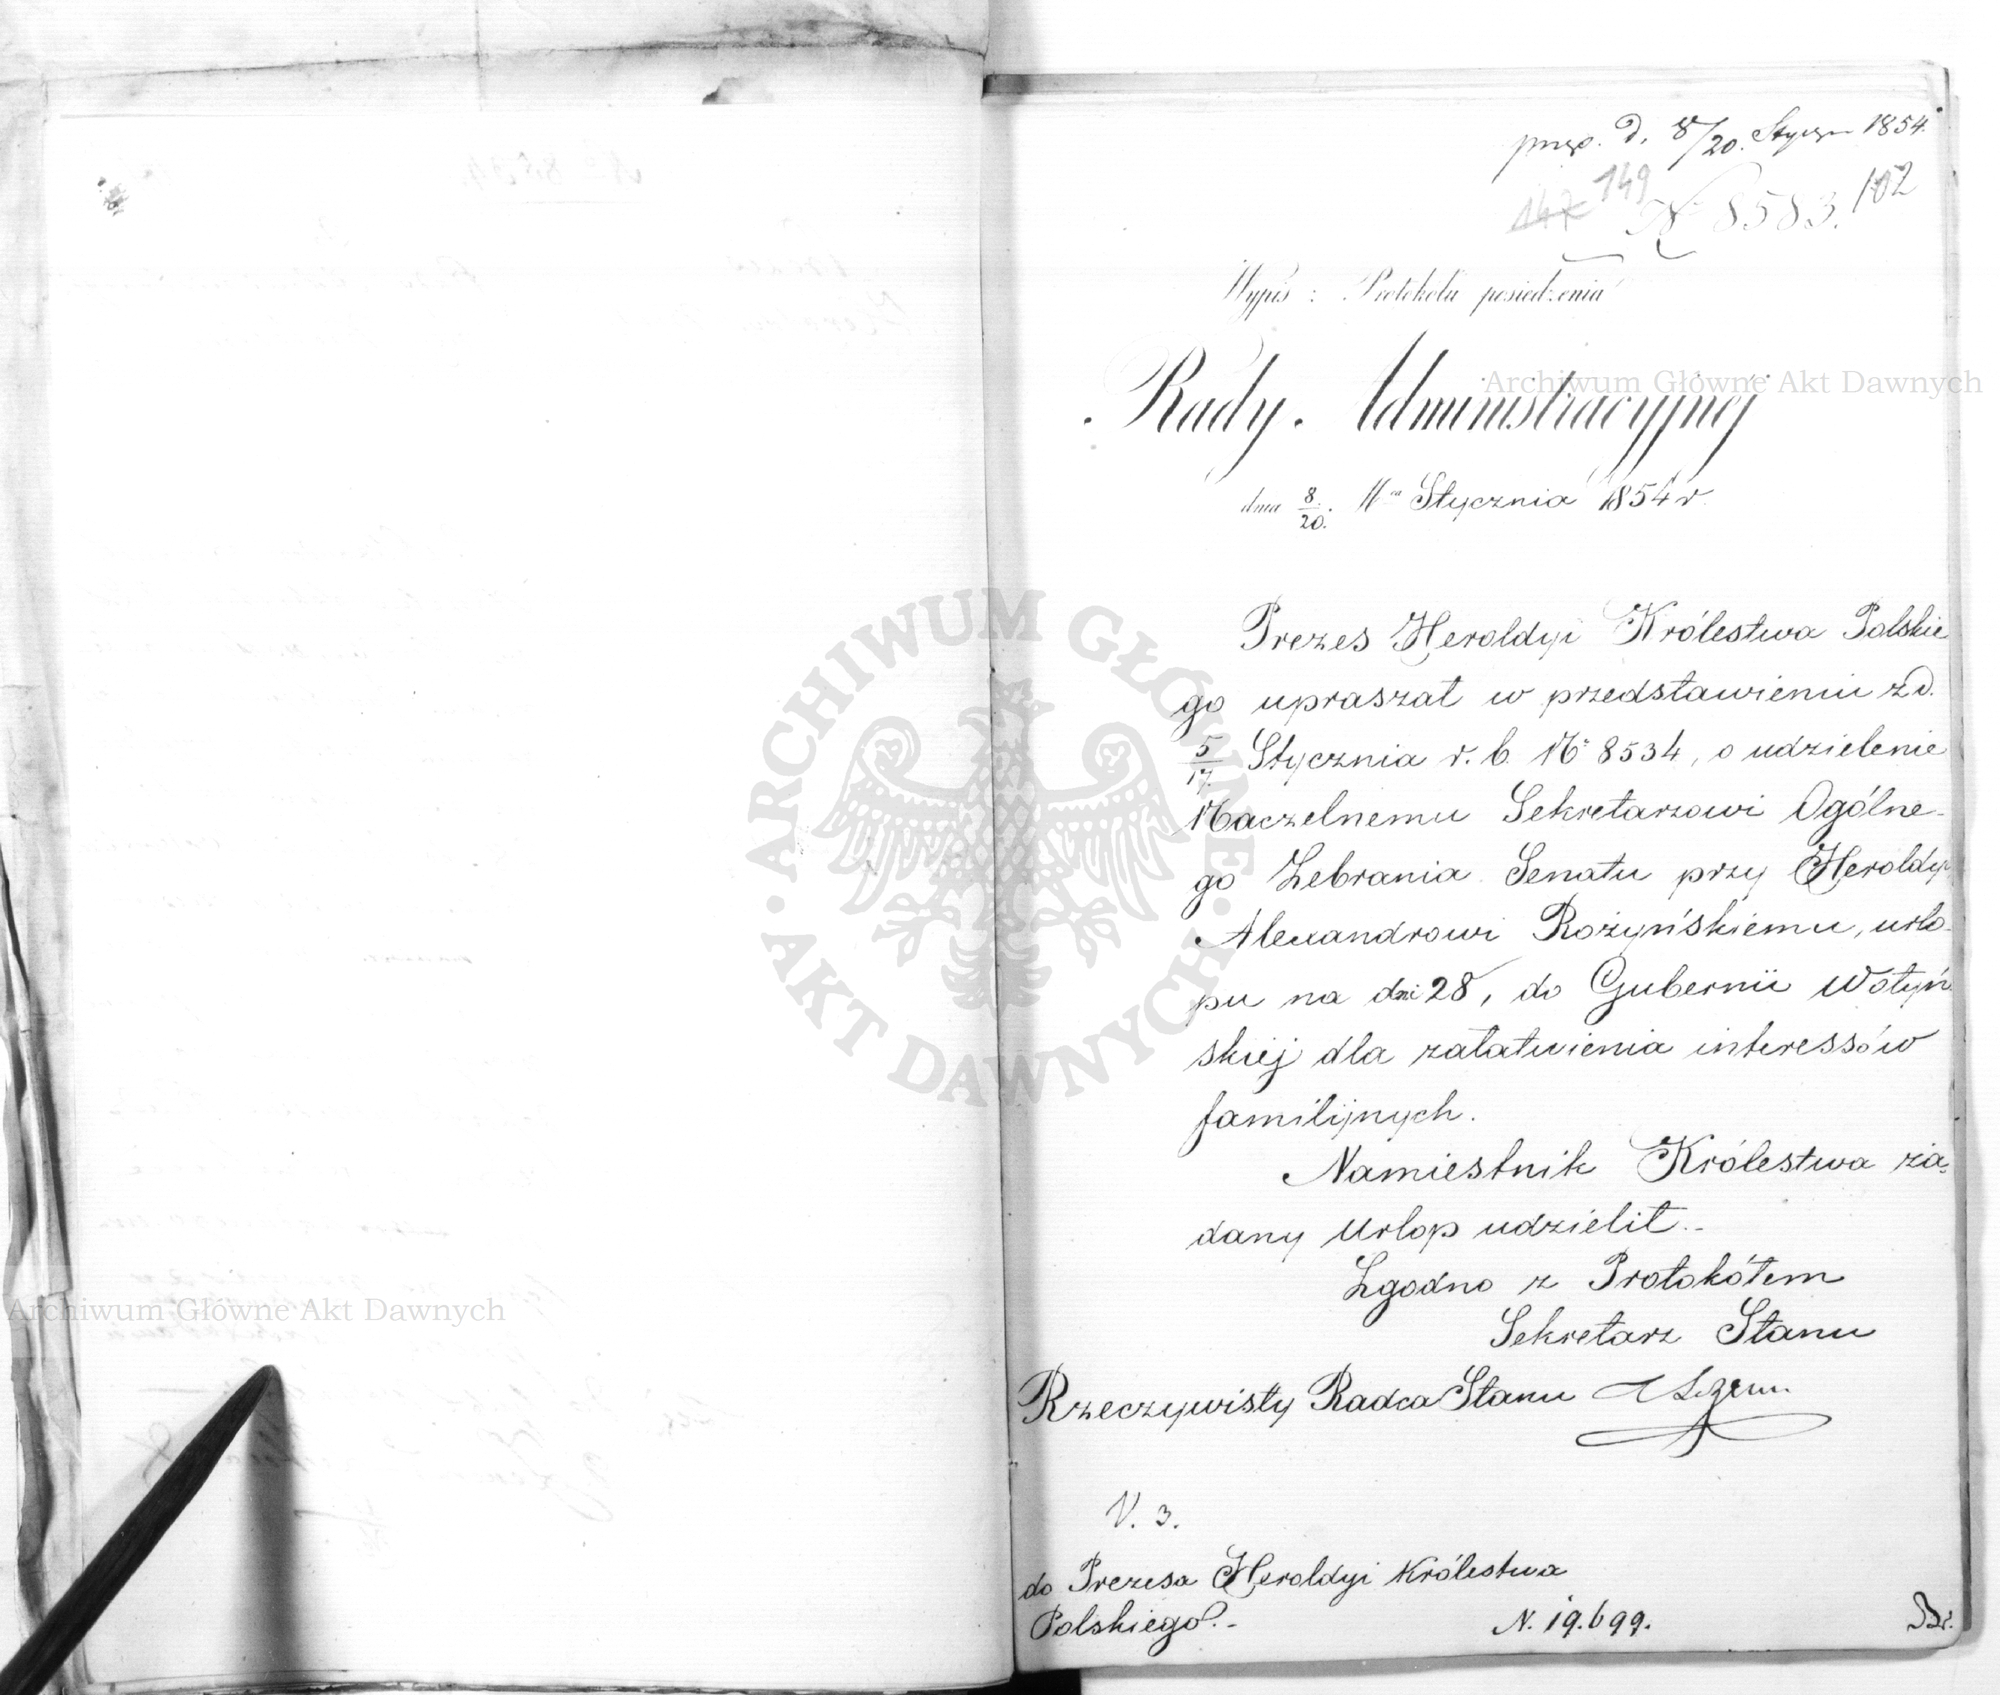 d. 8/20. Stycznia 1854.
147 149 102
Nr 8583.
Wypis z Protokołu posiedzenia
Rady Administracyjnej
dnia 8/20. Mca Stycznia 1854 r.
Prezes Heroldyi Królestwa Polskie
go upraszał w przedstawieniu z d.
5/17. Stycznia r. b. Nr 8534, o udzielenie
Naczelnemu Sekretarzowi Ogólne-
go Zebrania Senatu przy Heroldyi
Alexandrowi Rożyńskiemu, urlo-
pu na dni 28, do Gubernii Wołyń
skiej dla załatwienia interessów
familijnych.
Namiestnik Królestwa żą-
dany Urlop udzielił.-
Zgodno z Protokółem
Sekretarz Stanu
Rzeczywisty Radca Stanu
V. 3.
do Prezesa Heroldyi Królestwa
Polskiego.-
N. 19.699.
Archiwum Główne Akt Dawnych
ARCHIWUM GŁÓWNE · AKT DAWNYCH ·
Archiwum Główne Akt Dawnych